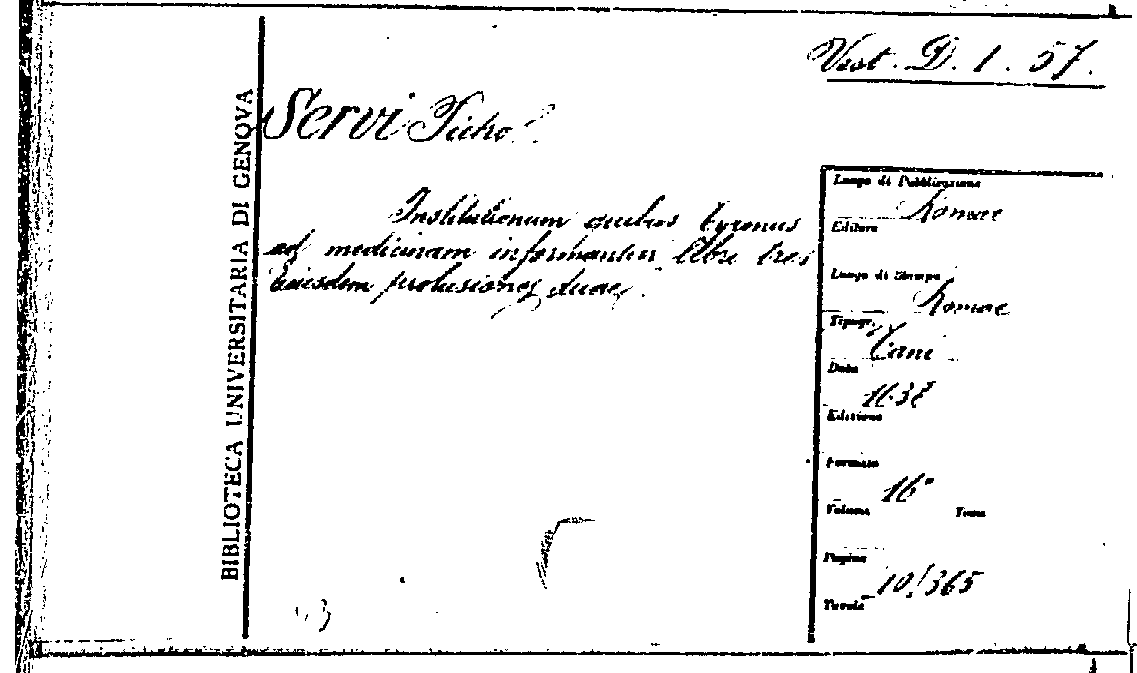 Vest. D. 1. 57.
BIBLIOTECA UNIVERSITARIA DI GENOVA
Servi
Institutionum quibus tyronus
ad medicinam informantur libri tres
Eiusdem prolusiones duae.
Luogo di Pubblicazione
Romae
Editore
Luogo di Stampa
Romae
Tipogr.
Data
1638
Edizione
Formato
16°
Volume Tomo
Pagine
10/365
Tavole